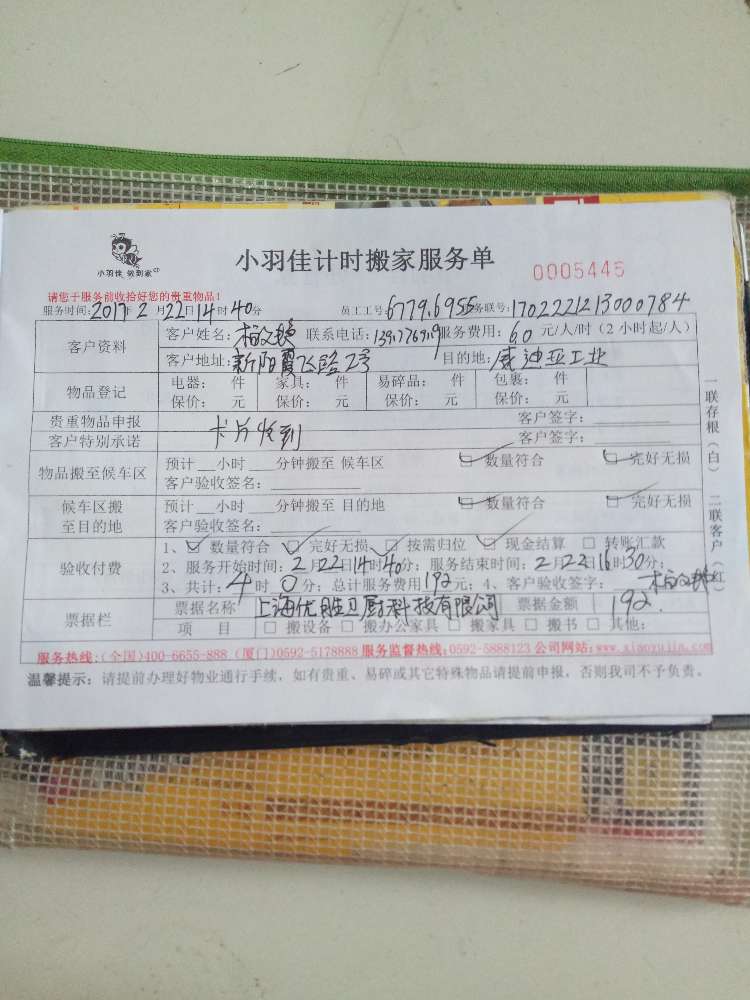 小羽佳 做到家
小羽佳计时搬家服务单
0005445
请您于服务前收拾好您的贵重物品！
服务时间：2017年2月22日14时40分 员工工号：6779.6955 服务联号：1702221213000784
客户资料
客户姓名： 联系电话： 服务费用：60元/人/时（2小时起/人）
客户地址：新阳霞飞路2号 目的地：威迪亚工业
物品登记
电器： 件 家具： 件 易碎品： 件 包裹： 件
保价： 元 保价： 元 保价： 元 保价： 元
贵重物品申报 客户签字：
客户特别承诺 卡片收到 客户签字：
物品搬至候车区
预计__小时__分钟搬至 候车区 数量符合 完好无损
客户验收签名：
候车区搬至目的地
预计__小时__分钟搬至 目的地 数量符合 完好无损
客户验收签名：
验收付费
1、数量符合 完好无损 按需归位 现金结算 □ 转账汇款
2、服务开始时间：2月22日14时40分；服务结束时间：2月22日16时30分；
3、共计：4时0分；总计服务费用192元；4、客户验收签字：
票据栏
票据名称 上海优胜卫厨科技有限公司 票据金额 192.
项 目 □ 搬设备 □ 搬办公家具 □ 搬家具 □ 搬书 □ 其他：
服务热线：（全国）400-6655-888（厦门）0592-5178888 服务监督热线：0592-5888123 公司网站：www.xiaoyujia.com
温馨提示：请提前办理好物业通行手续，如有贵重、易碎或其它特殊物品请提前申报，否则我司不予负责。
一联存根（白） 二联客户（红）